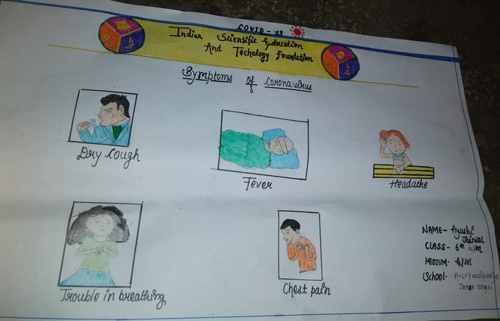 COVID-19
Indian Scientific Education
And Techalogy Foundation
Symptoms of coronavirus
Dry cough
Fever
Headathe
Trouble in breathing
Chest pain
NAME- Ayushi
Jaiswal
CLASS- 6th H/M
MEDIUM- H/M
School-